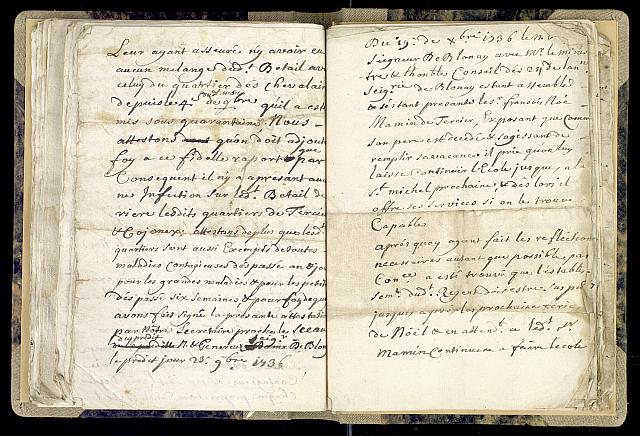 Leur ayant asseuré n'y avoir eu
aucun melange dud.t Betail avec
celuy du quartier des Chevalain
depuis le 4.e de 9bre qu'il a esté
mis sous quarantaine. Nous
attestons qu'on doit adjouter
foy a ce fidelle raport & que par
Consequent il n'y a apresant aucu
ne Infection sur led.t Betail der
riere lesdits quartiers de Tercier
& Cojonex, attestons de plus que lesd.ts
quartiers sont aussi Exempts de toutes
maladies Contagieuses des passé an & jour
pour les grandes maladies & pour les petites
des passé six semaines & pour foy de quoy
avons fait signé la presente attestation
par Nôtre Secretaire proche le sceau
dud.t Noble & Genereux Seig.r De Blonay
le predit jour 23.e 9bre 1736
Du 29.e de xbre 1736 le No
Seigneur De Blonay avec Mr. le minis
tre & l'honble Conseil des 24 de la
Seig.rie de Blonay estant assemblé
& s'estant presanté le Sr. françois Noé
Mamin de Tercier, Exposant que Comme
son pere est decedé & s'agissant de
remplir sa vacance il prie qu'on luy
laisse Continuer l'Ecole jusques, a la
St. michel prochaine, & dès lors il
offre ses services si on le trouve
Capable
après quoy ayant fait les reflections
necessaires autant que possible par
Con.ce a esté trouvé que l'establis
sem.t dud.t Regent doit estre suspendu
jusques apres les prochaine feries
de Noël & en attend.t ce led.t Sr.
Mamin Continuera a faire l'ecole